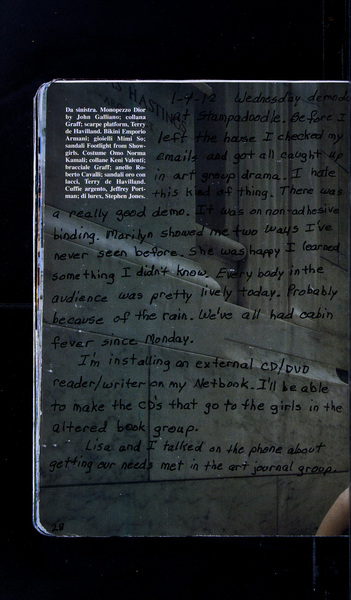 Da sinistra. Monopezzo Dior
by John Galliano; collana
Graff; scarpe platform, Terry
de Havilland. Bikini Emporio
Armani; gioielli Mimi So;
sandali Footlight from Show-
girls. Costume Omo Norma
Kamali; collane Keni Valenti;
bracciale Graff; anello Ro-
berto Cavalli; sandali oro con
lacci, Terry de Havilland.
Cuffie argento, Jeffrey Port-
man; di lurex, Stephen Jones.
1-4-12 Wednesday demoday
at Stampadoodle. Before I
left the house I checked my
emails and got all caught up
in art group drama. I hate
this kind of thing. There was
a really good demo. It was on non-adhesive
binding. Marilyn showed me two ways I've
never seen before. She was happy I learned
something I didn't know. Every body in the
audience was pretty lively today. Probably
because of the rain. We've all had cabin
fever since Monday.
I'm installing an external CD/DVD
reader/writer on my Netbook. I'll be able
to make the CD's that go to the girls in the
altered book group.
Lisa and I talked on the phone about
getting our needs met in the art journal group.